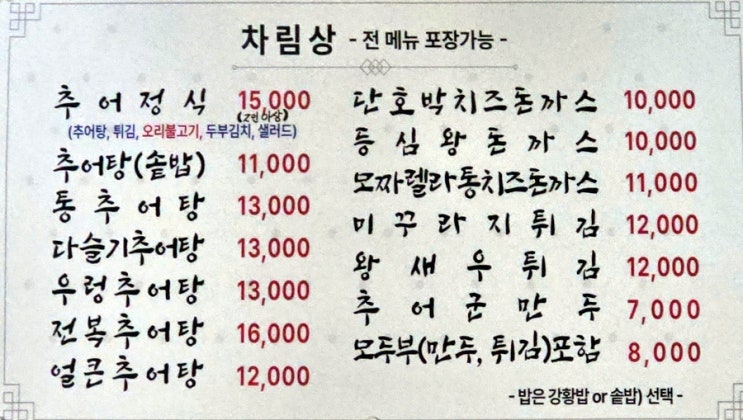 차림상 - 전 메뉴 포장가능 -
추어정식 15,000
(2인 이상)
(추어탕, 튀김, 오리불고기, 두부김치, 샐러드)
추어탕(솥밥) 11,000
통추어탕 13,000
다슬기추어탕 13,000
우렁추어탕 13,000
전복추어탕 16,000
얼큰추어탕 12,000
단호박치즈돈까스 10,000
등심왕돈까스 10,000
모짜렐라통치즈돈까스 11,000
미꾸라지튀김 12,000
왕새우튀김 12,000
추어군만두 7,000
모두부(만두, 튀김)포함 8,000
- 밥은 강황밥 or 솥밥) 선택 -